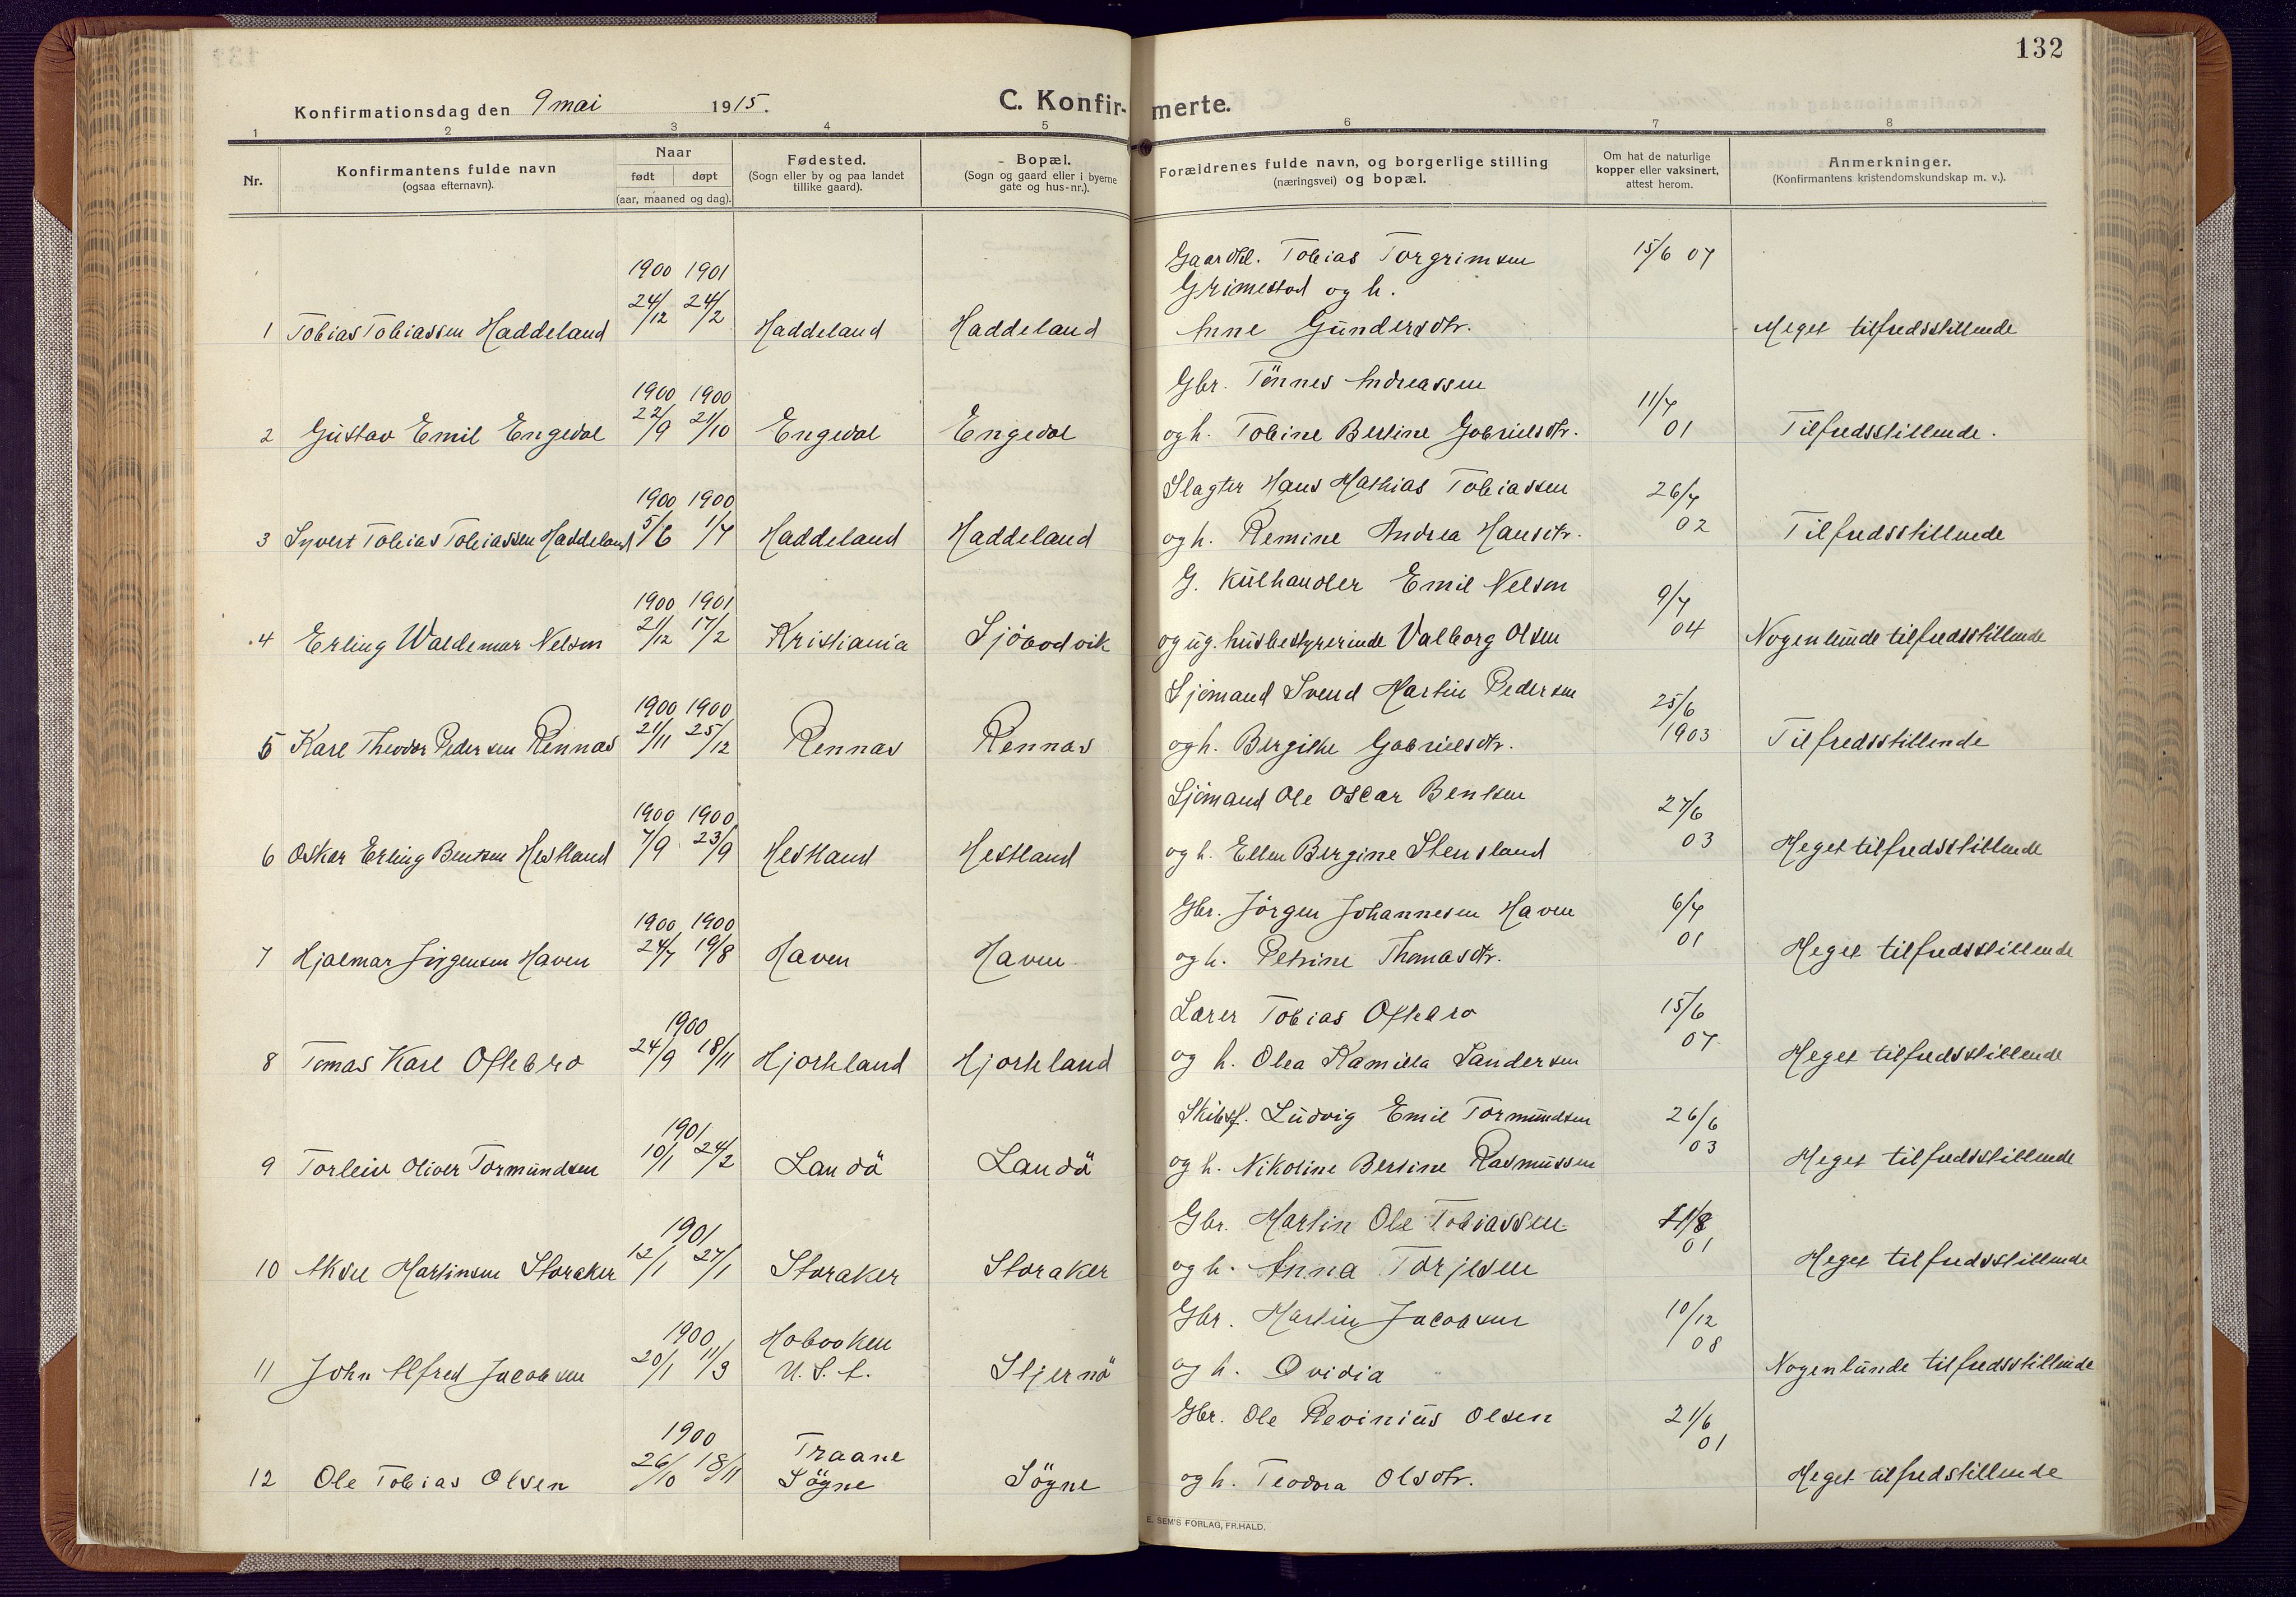 132
Konfirmationsdag den 9 mai 1915.
C. Konfirmerte.
1 2 3 4 5 6 7 8
Nr.
Konfirmantens fulde navn
(ogsaa efternavn).
Naar
født døpt
(aar, maaned og dag).
Fødested.
(Sogn eller by og paa landet
tillike gaard).
Bopæl.
(Sogn og gaard eller i byerne
gate og hus-nr.).
Forældrenes fulde navn, og borgerlige stilling
(næringsvei) og bopæl.
Om hat de naturlige
kopper eller vaksinert,
attest herom.
Anmerkninger.
(Konfirmantens kristendomskundskap m. v.).
Gaardbl. Tobias Torgrimsen 15/6 07
1900 1901 Grimestad og h.
1 Tobias Tobiassen Haddeland 24/12 24/2 Haddeland Haddeland Anne Gundersdtr. Meget tilfredsstillende
1900 1900 Gbr. Tönnes Andreassen 11/7
2 Gustav Emil Engedal 22/9 21/10 Engedal Engedal og h. Tobine Bertine Gabrielsdtr. 01 Tilfredsstillende.
1900 1900 Slagter Hans Mathias Tobiassen 26/7
3 Syvert Tobias Tobiassen Haddeland 5/6 1/7 Haddeland Haddeland og h. Remine Andrea Hansdtr. 02 Tilfredsstillende
1900 1901 G. Kulhandler Emil Nelson 9/7
4 Erling Waldemar Nelson 21/12 17/2 Kristiania Sjöbodvik og ug. husbestyrerinde Valborg Olsen 04 Nogenlunde tilfredsstillende
1900 1900 Sjömand Svend Martin Pedersen 25/6
5 Karl Theodor Pedersen Rennas 21/11 25/12 Rennas Rennas og h. Bergitte Gabrielsdtr. 1903 Tilfredsstillende
1900 1900 Sjömand Ole Oscar Bentsen 27/6
6 Oskar Erling Bentsen Hestland 7/9 23/9 Hestland Hestland og h. Ellen Bergine Stensland 03 Meget tilfredsstillende
1900 1900 Gbr. Jörgen Johannesen Haven 6/7
7 Hjalmar Jörgensen Haven 24/7 19/8 Haven Haven og h. Petrine Thomasdtr. 01 Meget tilfredsstillende
1900 Lærer Tobias Oftebro 15/6
8 Tomas Karl Oftebro 24/9 18/11 Hjorteland Hjorteland og h. Olea Kamilla Sandersen 07 Meget tilfredsstillende
1901 Skibsf. Ludvig Emil Tormundsen 26/6
9 Torleiv Oliver Tormundsen 10/1 24/2 Landö Landö og h. Nikoline Bertine Rasmussen 03 Meget tilfredsstillende
1901 Gbr. Martin Ole Tobiassen 11/8
10 Aksel Martinsen Storaker 12/1 27/1 Storaker Storaker og h. Anna Torjesen 01 Meget tilfredsstillende
1900 Hobooken Gbr. Martin Jacobsen 10/12
11 John Alfred Jacobsen 20/1 11/3 U.S.A. Stjernö og h. Ovidia 08 Nogenlunde tilfredsstillende
1900 Traane Gbr. Ole Revinius Olsen 21/6
12 Ole Tobias Olsen 26/10 18/11 Sögne Sögne og h. Teodora Olsdtr. 01 Meget tilfredstillende
E. SEM'S FORLAG, FR.HALD.